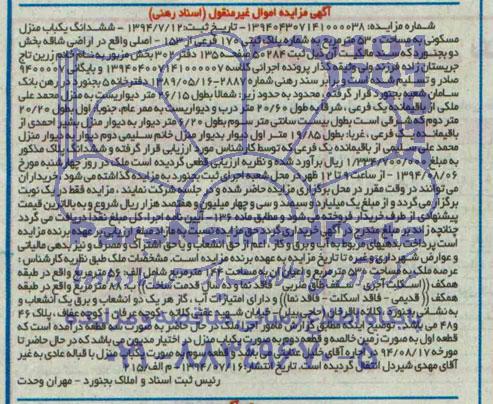 آگهی مزایده اموال غیرمنقول (اسناد رهنی)
شماره مزایده: ۱۳۹۴۰۴۳۰۷۱۴۱۰۰۰۰۳۸ - تاریخ ثبت: ۱۳۹۴/۷/۱۲ - ششدانگ یکباب منزل
مسکونی به مساحت ۵۳۰ متر مربع به شماره پلاک ثبتی فرعی از ۱۵۳ - اصلی واقع در اراضی شاقه بخش
دو بجنورد که سند مالکیت ثبت ۵۲۸۴ صفحه ۱۳۵ دفتر ۳۰ بخش مزبور به نام خانم زرین تاج
جریستان زاده فرزند ولی طبقه کلاسه پرونده اجرائی
صادر و تسلیم شده برابر سند رهنی شماره ۲۸۸۷۰-۱۳۸۹/۰۵/۱۶ دفترخانه ۵ بجنورد در رهن بانک
سامان شعبه بجنورد قرار گرفته محدود به حدود زیر: شمالا بطول ۲۶/۱۵ متر دیواریست به منزل محمد علی
ملکی از باقیمانده یک فرعی، شرقا به طول ۲۰/۶۰ متر درب و دیواریست به ممر عام، جنوبا اول بطول ۲۰/۲۰
متر دوم که شرقی است بطول بیست سانتی متر سوم بطول ۶/۲۰ متر دیوار به دیوار منزل بشیر احمدی از
باقیمانده یک فرعی، غربا: بطول ۱۹/۸۵ متر اول دیوار بدیوار منزل خانم سلیمی دوم دیوار به دیوار منزل
محمد علی سلیمی از باقیمانده یک فرعی که توسط کارشناس مورد ارزیابی قرار گرفته و ششدانگ پلاک مذکور
به مبلغ ۱/۳۳۴/۰۰۰/۰۰۰ ریال برآورد شده و نظریه ارزیابی قطعی گردیده است ملک در روز چهارشنبه مورخ
۱۳۹۴/۰۸/۰۶ - از ساعت ۹ تا ۱۲ ظهر در محل شعبه اجرای ثبت بجنورد به مزایده گذاشته می شود خریداران
می توانند در وقت مقرر در محل برگزاری مزایده حاضر شده و در جلسه شرکت نمایند. مزایده فقط در یک نوبت
برگزار می گردد و از مبلغ یک میلیارد و سیصد و سی و چهار میلیون ریال شروع و به بالاترین قیمت
پیشنهادی از طرف خریدار فروخته می شود و مطابق ماده ۱۳۶ - آئین نامه اجرا، کل مبلغ نقدا دریافت می گردد
چنانچه زائد بر مبلغ مندرج در آگهی خریداری گردد حق مزایده نسبت به مازاد مبلغ ارزیابی به عهده برنده مزایده
است پرداخت بدهیهای مربوط به آب و برق و گاز، اعم از حق انشعاب یا حق اشتراک و مصرف و نیز بدهی مالیاتی
و عوارض شهرداری و غیره تا تاریخ مزایده به عهده برنده مزایده است. مشخصات ملک طبق نظریه کارشناس:
عرصه ملک به مساحت ۵۳۰ متر مربع و اعیان آن به مساحت ۱۴۴ مترمربع شامل الف: ۵۶ مترمربع واقع در طبقه
همکف ((اسکلت آجری - سقف طاق ضربی - فاقد نما و که سال قدمت ساخت)) ب: ۸۸ مترمربع واقع در طبقه
همکف ((قدیمی - فاقد اسکلت - فاقد نما)) و دارای امتیازات آب، گاز هر یک دو انشعاب و برق یک انشعاب و
به نشانی بجنورد کلاته باقرخان (حاجی بیان) خیابان شهید عفتی کلاته کوچه عرفان ۱ کوچه عفاف، پلاک ۴۶
و ۴۸ می باشد. توضیح اینکه مطابق گزارش مامور اجرا ملک در حال حاضر به صورت سه قطعه درآمده است که
قطعه اول به صورت زمین خالصه و قطعه دوم به صورت یکباب منزل در اختیار مدیون می باشد که در حال حاضر تا
مورخه ۹۴/۰۸/۱۷ در اجاره آقای خلیل عسگری می باشد و قطعه سوم به صورت یکباب منزل با قباله عادی به غیر
آقای مهدی شیردل انتقال گردیده است. تاریخ انتشار: ۱۳۹۴/۰۷/۱۶ - م الف/۲۱۵
رئیس ثبت اسناد و املاک بجنورد - مهران وحدت
۰۲۱-۸۸۳۴۹۶۷۰-۵